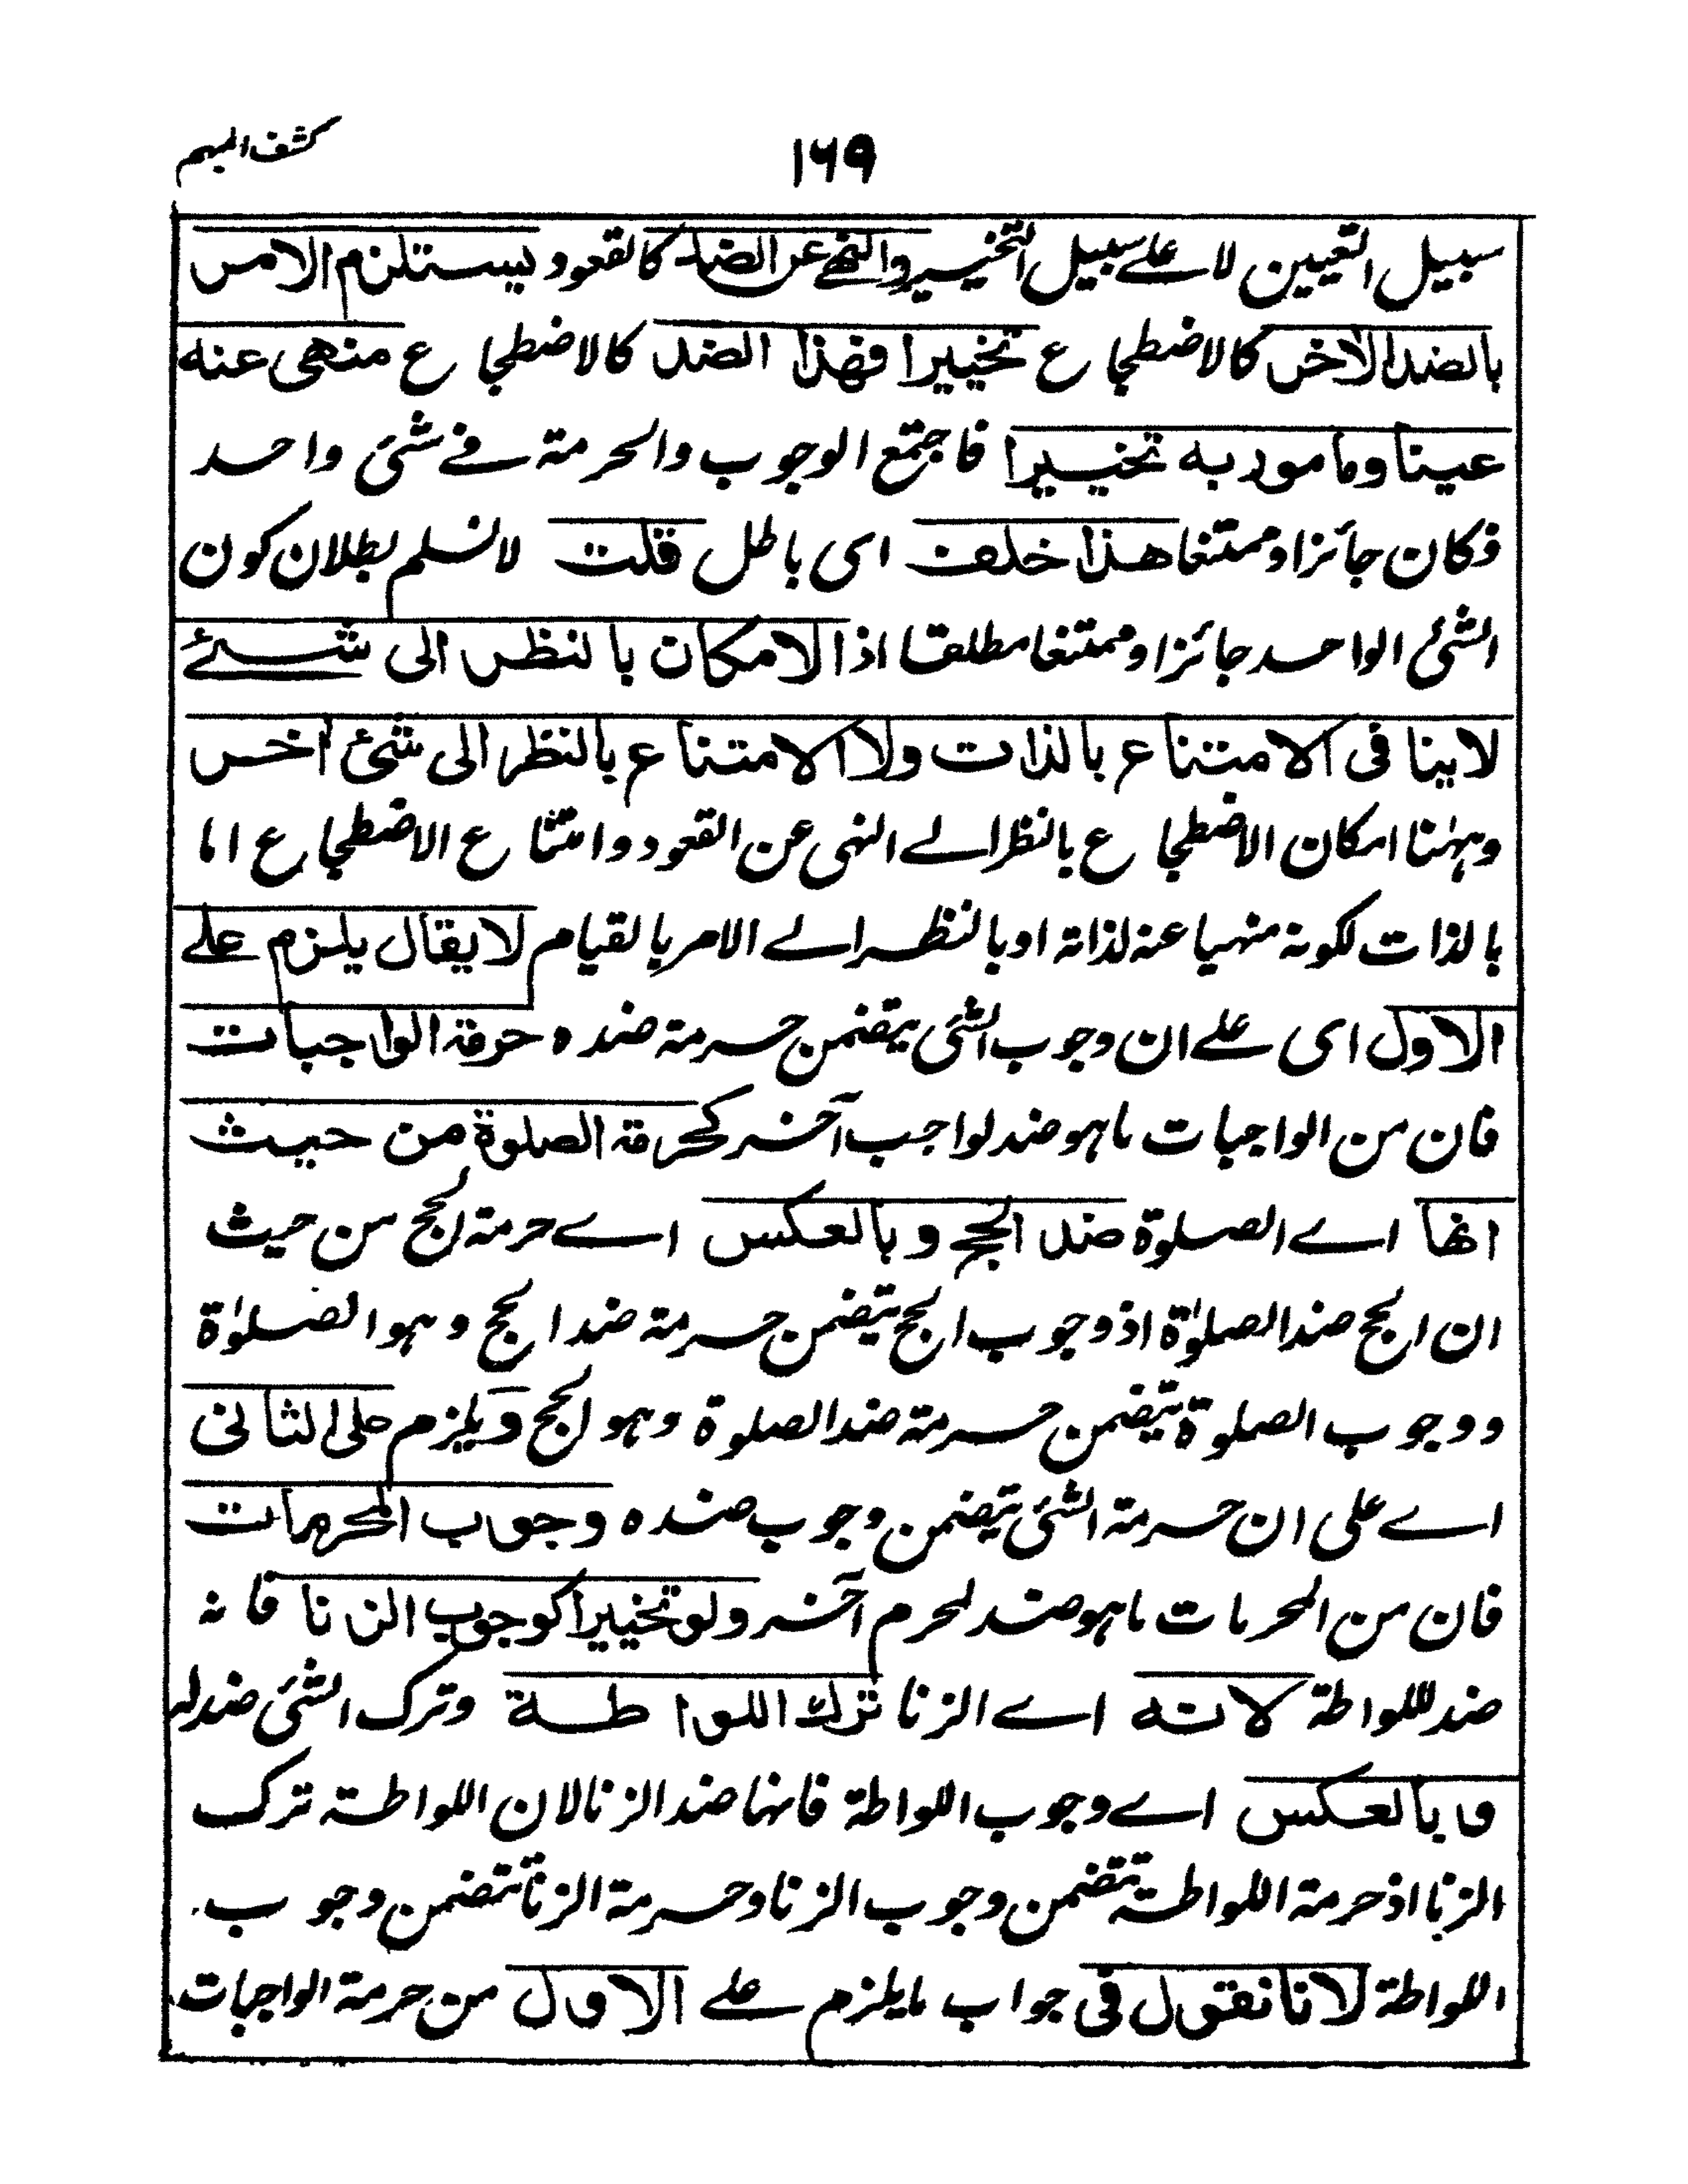 كشف المبهم
۱۶۹
سبيل التعيين لا على سبيل التخيير والنهي عن الضد كالقعود يستلزم الامر
بالضد الآخر كالاضطجاع تخييرا فهذا الضد كالاضطجاع منهى عنه
عينا ومامور به تخييرا فاجتمع الوجوب والحرمة في شئ واحد
فكان جائزا وممتنعا هذا خلف اى باطل قلت لا نسلم بطلان كون
الشئ الواحد جائزا وممتنعا مطلقا اذ الامكان بالنظر الى شئ
لا ينافى الامتناع بالذات ولا الامتناع بالنظر الى شئ آخر
وههنا امكان الاضطجاع بالنظر الے النهى عن القعود وامتناع الاضطجاع اما
بالذات لكونه منهيا عنه لذاته او بالنظر الے الامر بالقيام لا يقال يلزم علے
الاول اى علے ان وجوب الشئ يتضمن حرمة ضده حرمة الواجبات
فان من الواجبات ما هو ضد لواجب آخر كحرمة الصلوة من حيث
انها اے الصلوة ضد الحج و بالعكس اے حرمة الحج من حيث
ان الحج ضد الصلوٰة اذ وجوب الحج يتضمن حرمة ضد الحج وهو الصلوٰة
ووجوب الصلوة يتضمن حرمة ضد الصلوة وهو الحج و يلزم على الثانى
اے على ان حرمة الشئ يتضمن وجوب ضده وجوب المحرمات
فان من المحرمات ما هو ضد لمحرم آخر ولو تخييرا كوجوب الزنا فانه
ضد للواطة لانه اے الزنا ترك اللواطة وترك الشئ ضد له
و بالعكس اے وجوب اللواطة فانها ضد الزنا لان اللواطة ترك
الزنا اذ حرمة اللواطة تتضمن وجوب الزنا وحرمة الزنا تتضمن وجوب
اللواطة لانا نقول فى جواب ما يلزم علے الاول من حرمة الواجبات